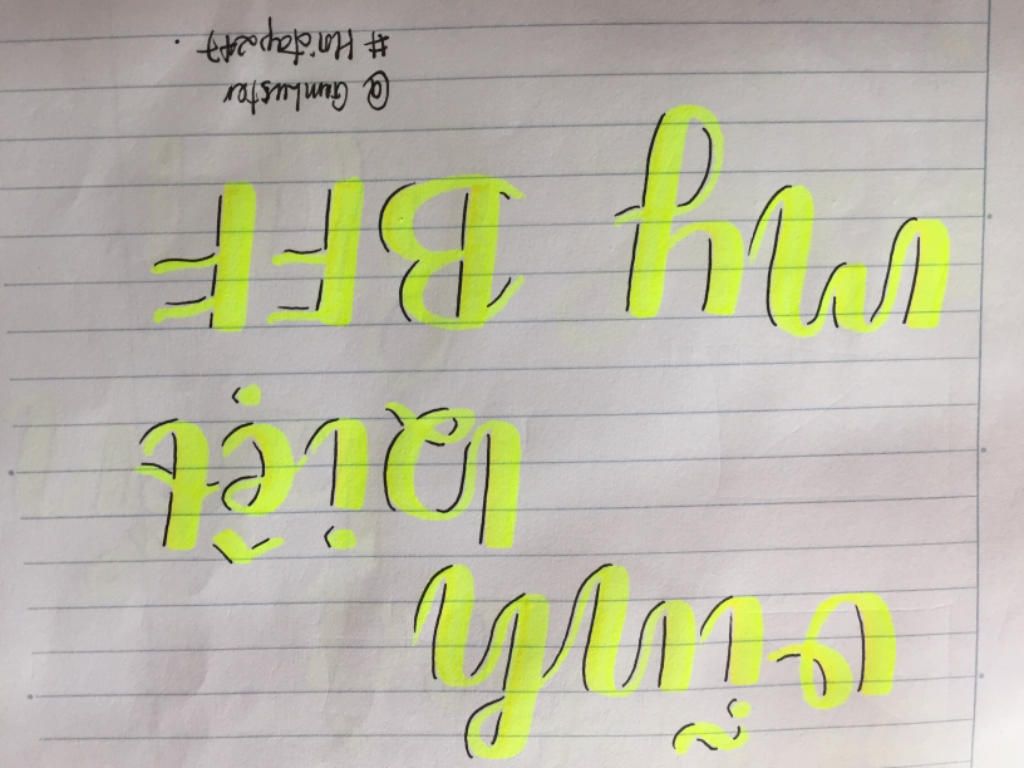 vĩnh
biệt
my BFF
@ GumLuster
# Hoidap247